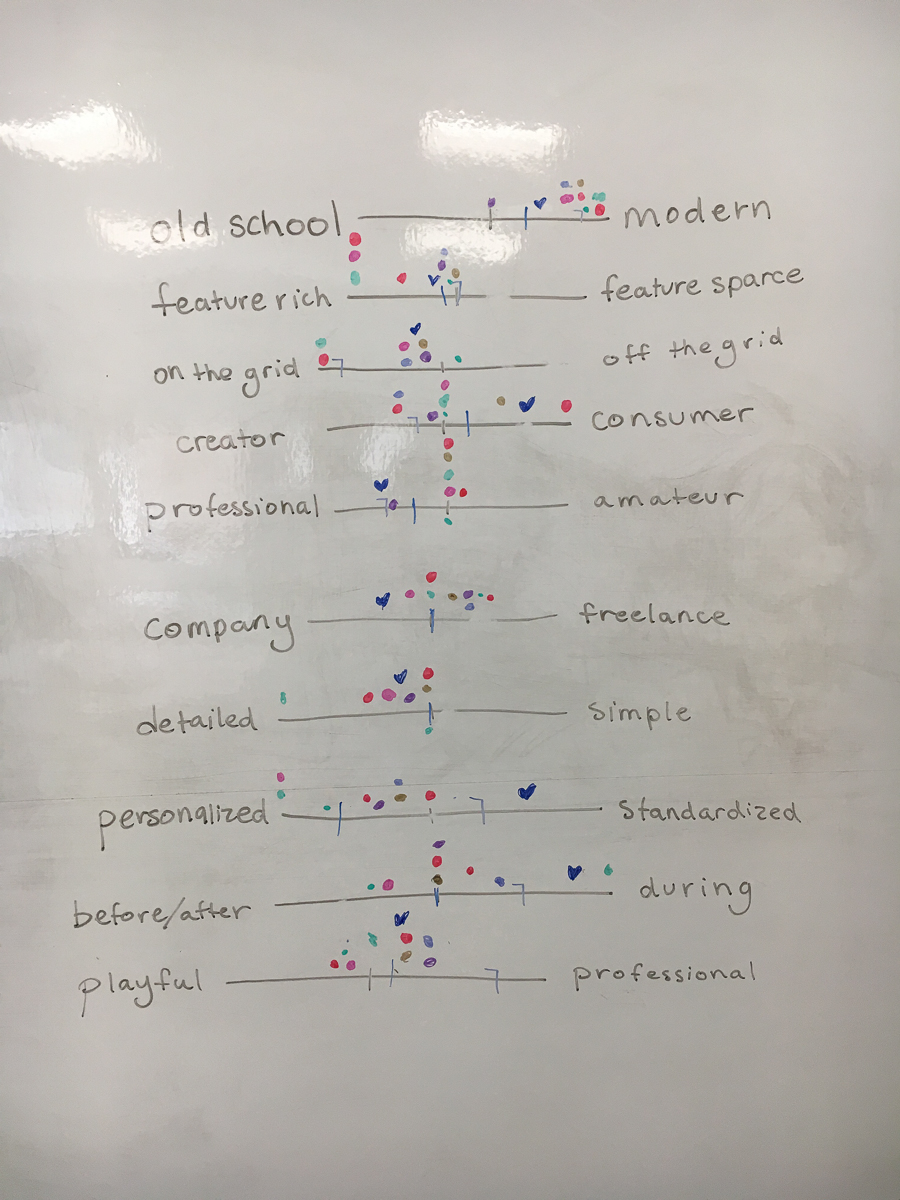 old school modern
feature rich feature sparce
on the grid off the grid
creator consumer
professional amateur
company freelance
detailed simple
personalized standardized
before/after during
playful professional